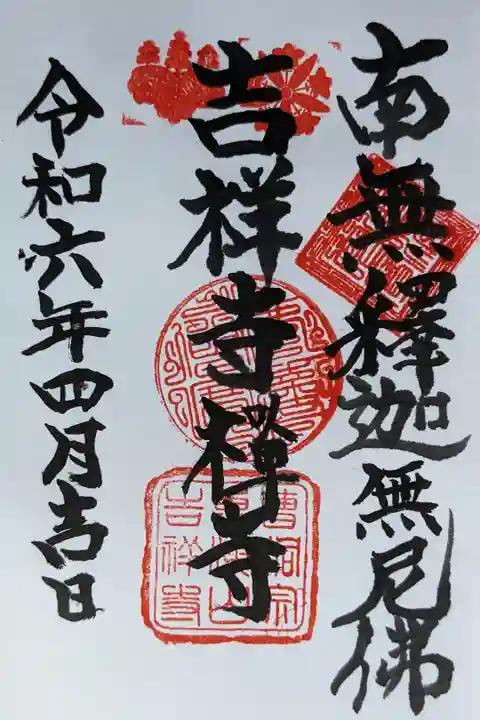 南無釋迦無尼佛
吉祥寺禅寺
令和六年四月吉日
曹洞宗
吉祥寺